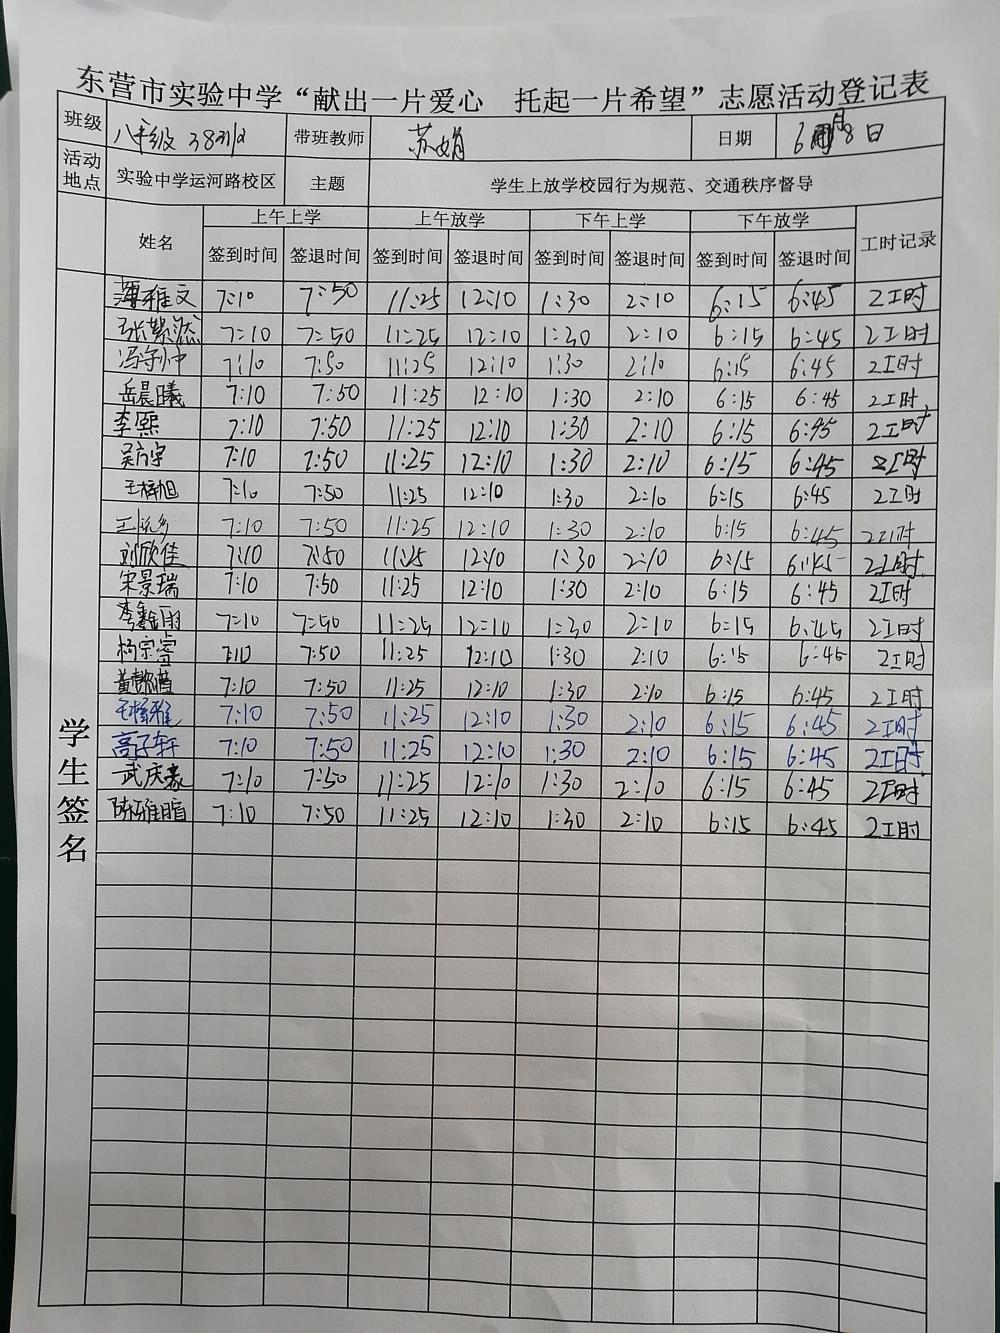 东营市实验中学“献出一片爱心 托起一片希望”志愿活动登记表
班级 八年级38班 带班教师 苏娟 日期 6月8日
活动地点 实验中学运河路校区 主题 学生上放学校园行为规范、交通秩序督导
姓名 上午上学 上午放学 下午上学 下午放学 工时记录
签到时间 签退时间 签到时间 签退时间 签到时间 签退时间 签到时间 签退时间
学生签名
薄雅文 7:10 7:50 11:25 12:10 1:30 2:10 6:15 6:45 2工时
张 7:10 7:50 11:25 12:10 1:30 2:10 6:15 6:45 2工时
冯宇帅 7:10 7:50 11:25 12:10 1:30 2:10 6:15 6:45 2工时
岳晨曦 7:10 7:50 11:25 12:10 1:30 2:10 6:15 6:45 2工时
李熙 7:10 7:50 11:25 12:10 1:30 2:10 6:15 6:45 2工时
吴方宇 7:10 7:50 11:25 12:10 1:30 2:10 6:15 6:45 2工时
王梓旭 7:10 7:50 11:25 12:10 1:30 2:10 6:15 6:45 2工时
7:10 7:50 11:25 12:10 1:30 2:10 6:15 6:45 2工时
刘欣佳 7:10 7:50 11:25 12:10 1:30 2:10 6:15 6:45 2工时
宋景瑞 7:10 7:50 11:25 12:10 1:30 2:10 6:15 6:45 2工时
李鑫雨 7:10 7:50 11:25 12:10 1:30 2:10 6:15 6:45 2工时
杨宗睿 7:10 7:50 11:25 12:10 1:30 2:10 6:15 6:45 2工时
黄 7:10 7:50 11:25 12:10 1:30 2:10 6:15 6:45 2工时
王梓雅 7:10 7:50 11:25 12:10 1:30 2:10 6:15 6:45 2工时
高子轩 7:10 7:50 11:25 12:10 1:30 2:10 6:15 6:45 2工时
武庆豪 7:10 7:50 11:25 12:10 1:30 2:10 6:15 6:45 2工时
陈雅暄 7:10 7:50 11:25 12:10 1:30 2:10 6:15 6:45 2工时